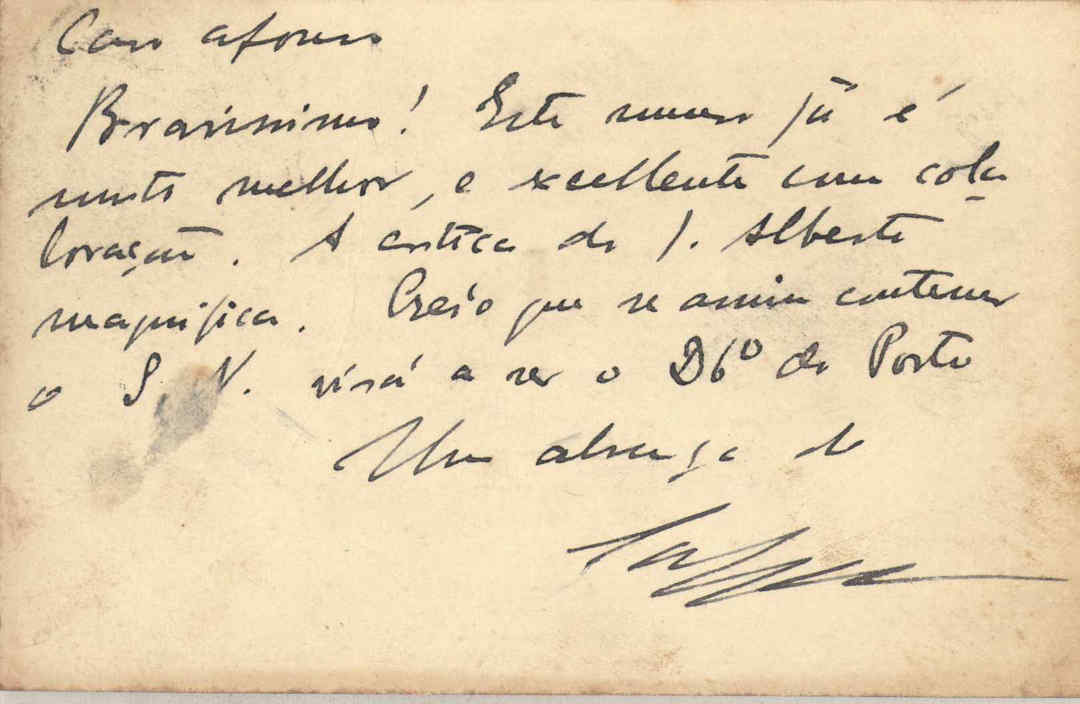 Caro Afonso
Bravissimo! Este numero já é
muito melhor, e excellente como cola
boração. A critica do J. Alberto
magnifica. Creio que se assim continuar
o S. N. virá a ser o D6º do Porto
Um abraço do